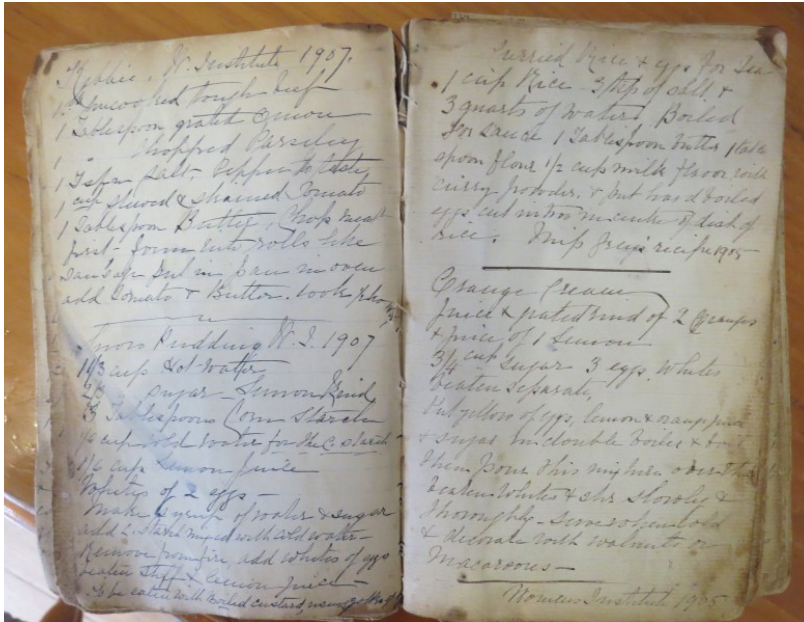 Kibbie. W. Institute 1907.
1 lb uncooked tough beef
1 Tablespoon grated Onion
1 " Chopped Parsley
1 Tspn Salt - Pepper to taste
1 cup stewed & strained Tomato
1 Tablespoon Butter, Chop meat
first - form into rolls like
sausage put in pan in oven
add Tomato & Butter. Cook
Snow Pudding W. I. 1907
1 1/3 cup Hot water
2/3 " sugar - Lemon Rind
3 Tablespoons Corn Starch
cup cold water for the C. starch -
1/4 cup Lemon juice
Whites of 2 eggs -
Make syrup of water & sugar
add C. starch mixed with cold water -
Remove from fire, add whites of eggs
beaten stiff & lemon juice -
To be eaten with boiled custard, using
Curried Rice & eggs for Tea
1 cup Rice - 3 tsp of salt &
3 quarts of water. Boiled
For sauce 1 Tablespoon butter 1 table
spoon flour 1/2 cup milk flavor with
curry powder. & put hard boiled
eggs cut in two in centre of dish of
rice. Miss Grey's recipe 1905
Orange Cream
Juice & grated rind of 2 Oranges
& juice of 1 Lemon
3/4 cup sugar 3 eggs. Whites
beaten separate.
Put yellow of eggs, lemon & orange juice
& sugar in double boiler & boil
then pour this mixture over the
beaten whites & stir slowly &
thoroughly - Serve when cold
& decorate with walnuts or
Macaroons -
Womens Institute 1905